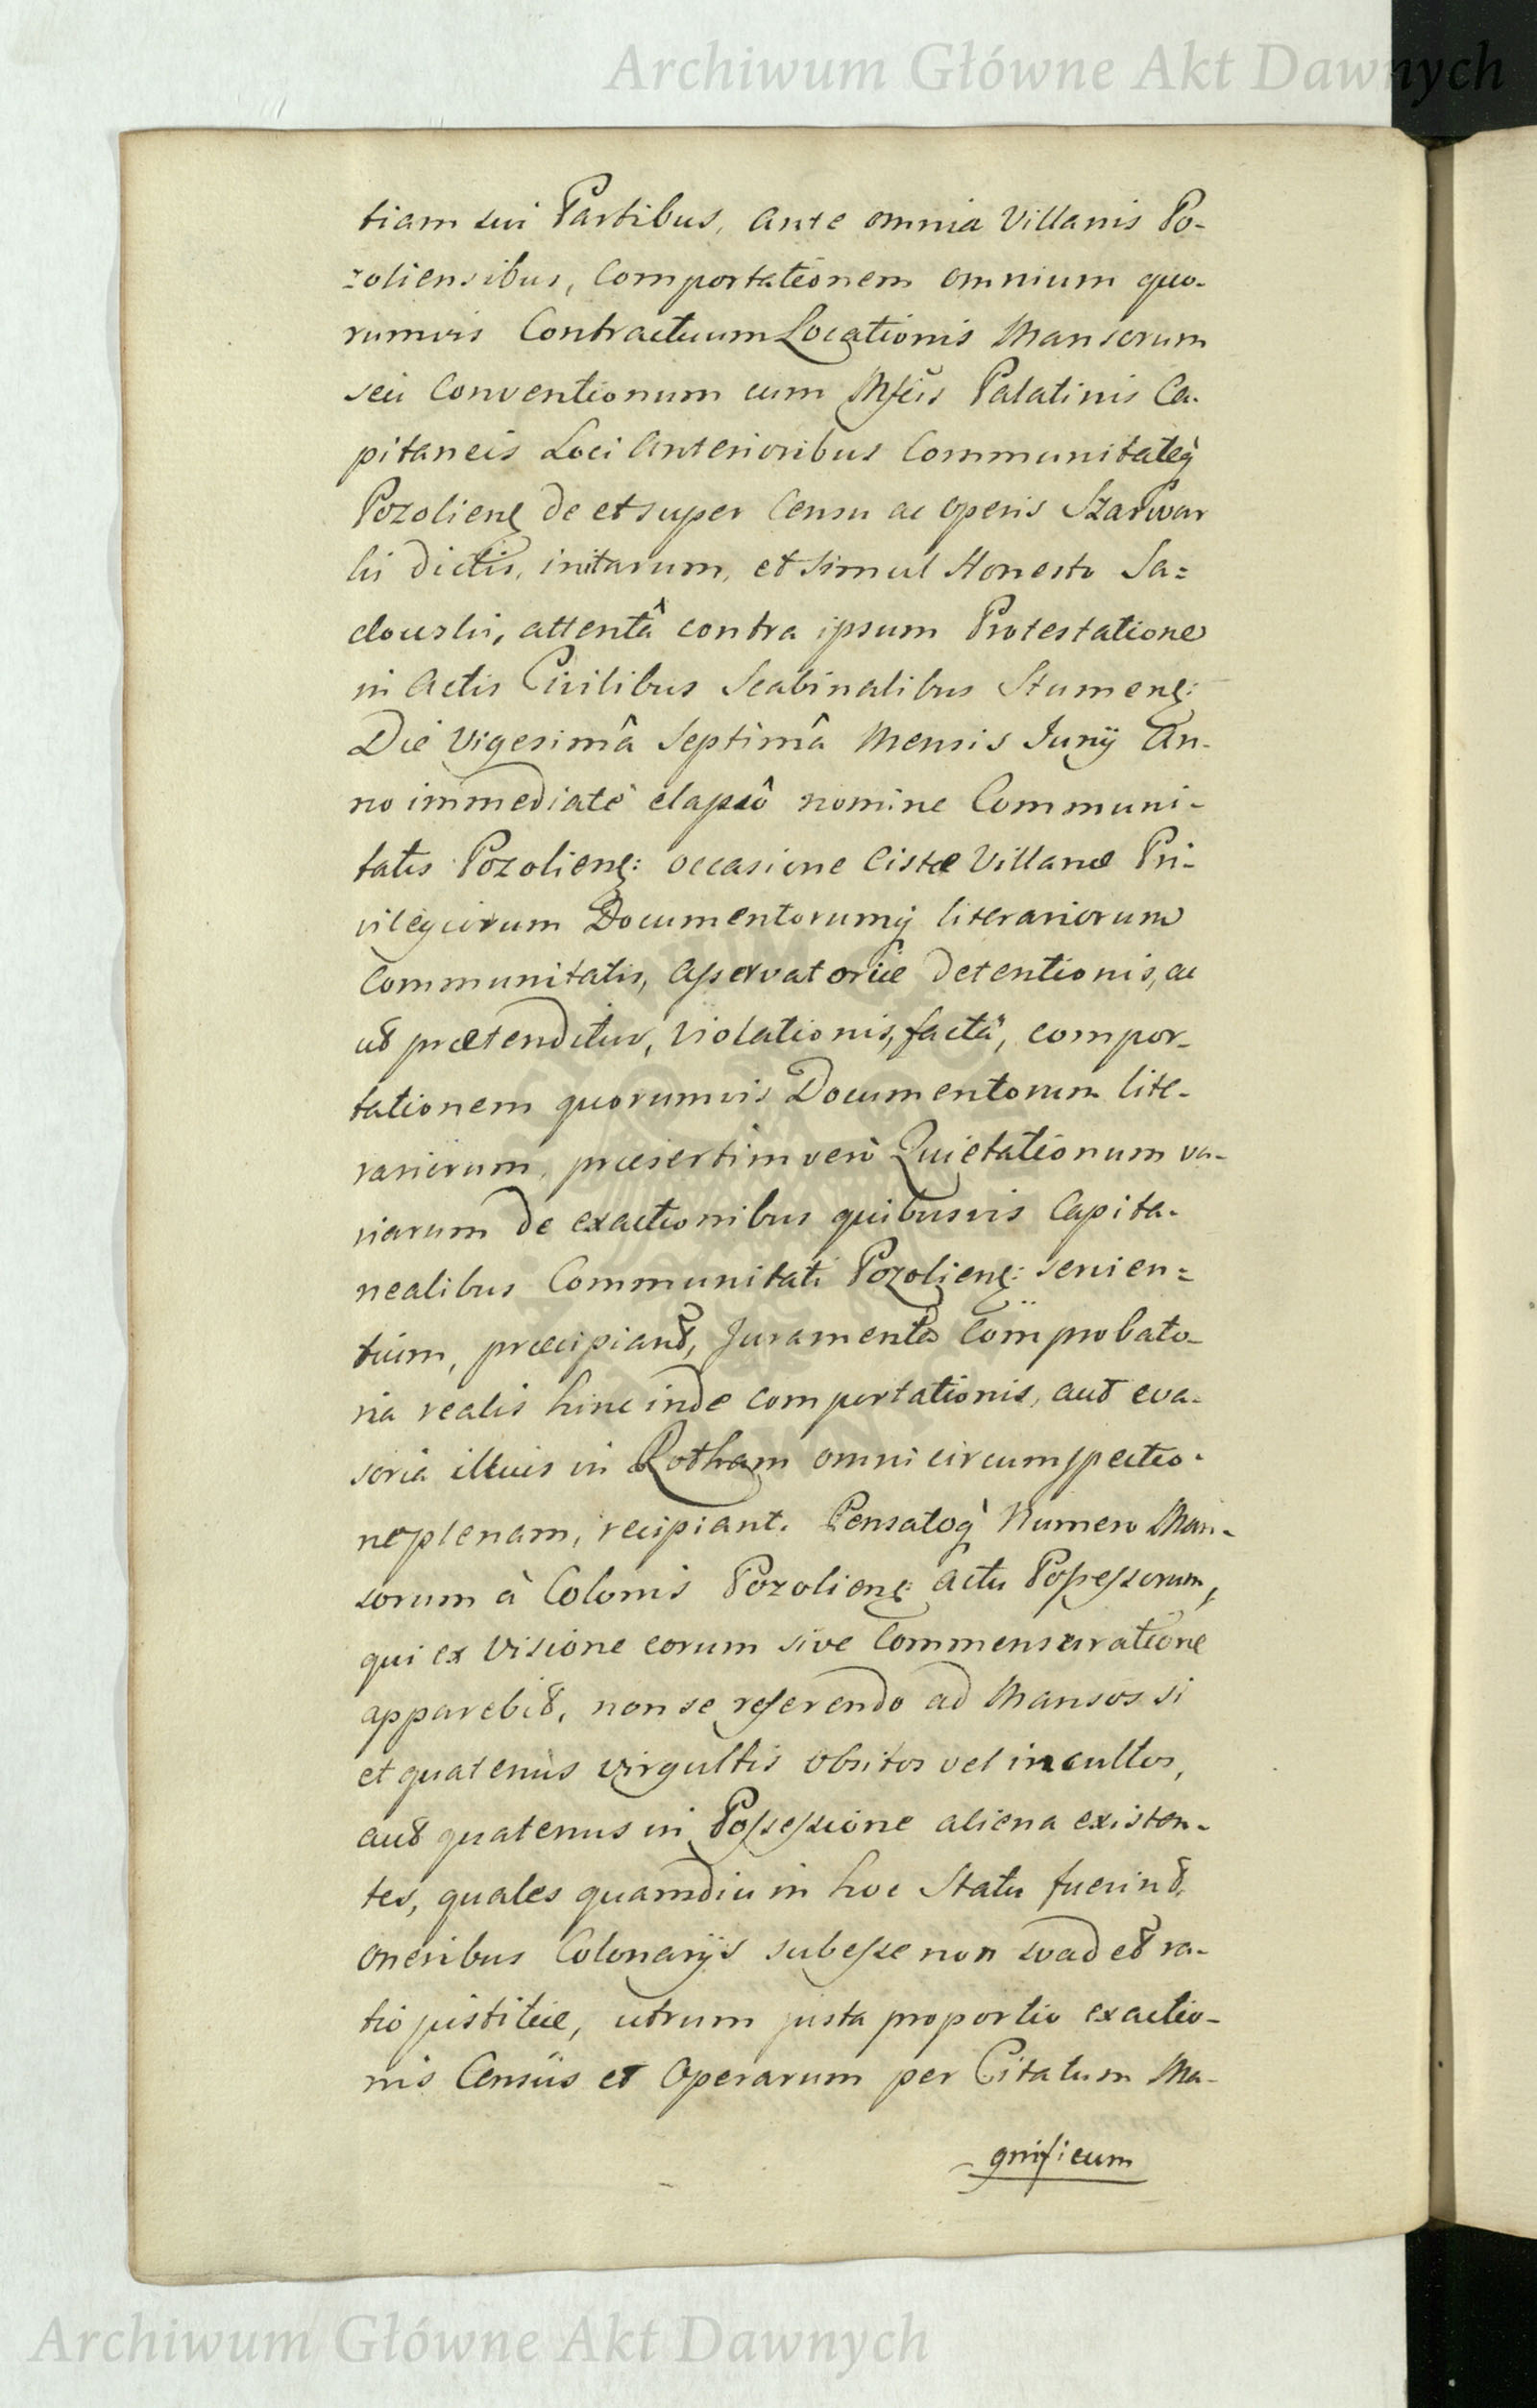 Archiwum Główne Akt Dawnych
tiam sui Partibus, Ante omnia Villanis Po-
zoliensibus, Comportationem omnium quo-
rumvis Contractuum Locationis Mansorum
seu Conventionum cum Palatinis Ca-
pitaneis Loci Anterioribus Communitateq̀
Pozolien: de et super Censu ac operis Szarwar
ki dictis, initarum, et simul Honesto Sa=
dowski, attentâ contra ipsum Protestatione
in Actis Civilibus Scabinalibus Stumen:
Die Vigesimâ Septimâ Mensis Junÿ An-
no immediatè elapsô nomine Communi-
tatis Pozolien: occasione Cistæ Villanæ Pri-
vilegiorum Documentorumq̀ literariorum
Communitatis, Asservatoriæ detentionis, ac
ut prætenditur, Violationis, factâ, compor-
tationem quorumvis Documentorum lite-
rariorum, præsertim verò Quietationum va-
riarum de exactionibus quibusvis Capita-
nealibus Communitati Pozolien: servien=
tium, præcipiant, Juramenta Comprobato-
ria realis hinc inde comportationis, aut eva-
soria illius in Rotham omni circumspectio-
ne plenam, recipiant. Pensatoq̀ Numero Man-
sorum à Colonis Pozolien: actu Possessorum,
qui ex Visione eorum sive Commensuratione
apparebit, non se referendo ad Mansos si
et quatenus virgultis obsitos vel incultos,
aut quatenus in Possessione aliena existen-
tes, quales quamdiu in hoc Statu fuerint,
oneribus Colonarÿs subesse non svadet ra-
tio justitiæ, utrum justa proportio exactio-
nis Censûs et Operarum per Citatum Ma-
gnificum
Archiwum Główne Akt Dawnych